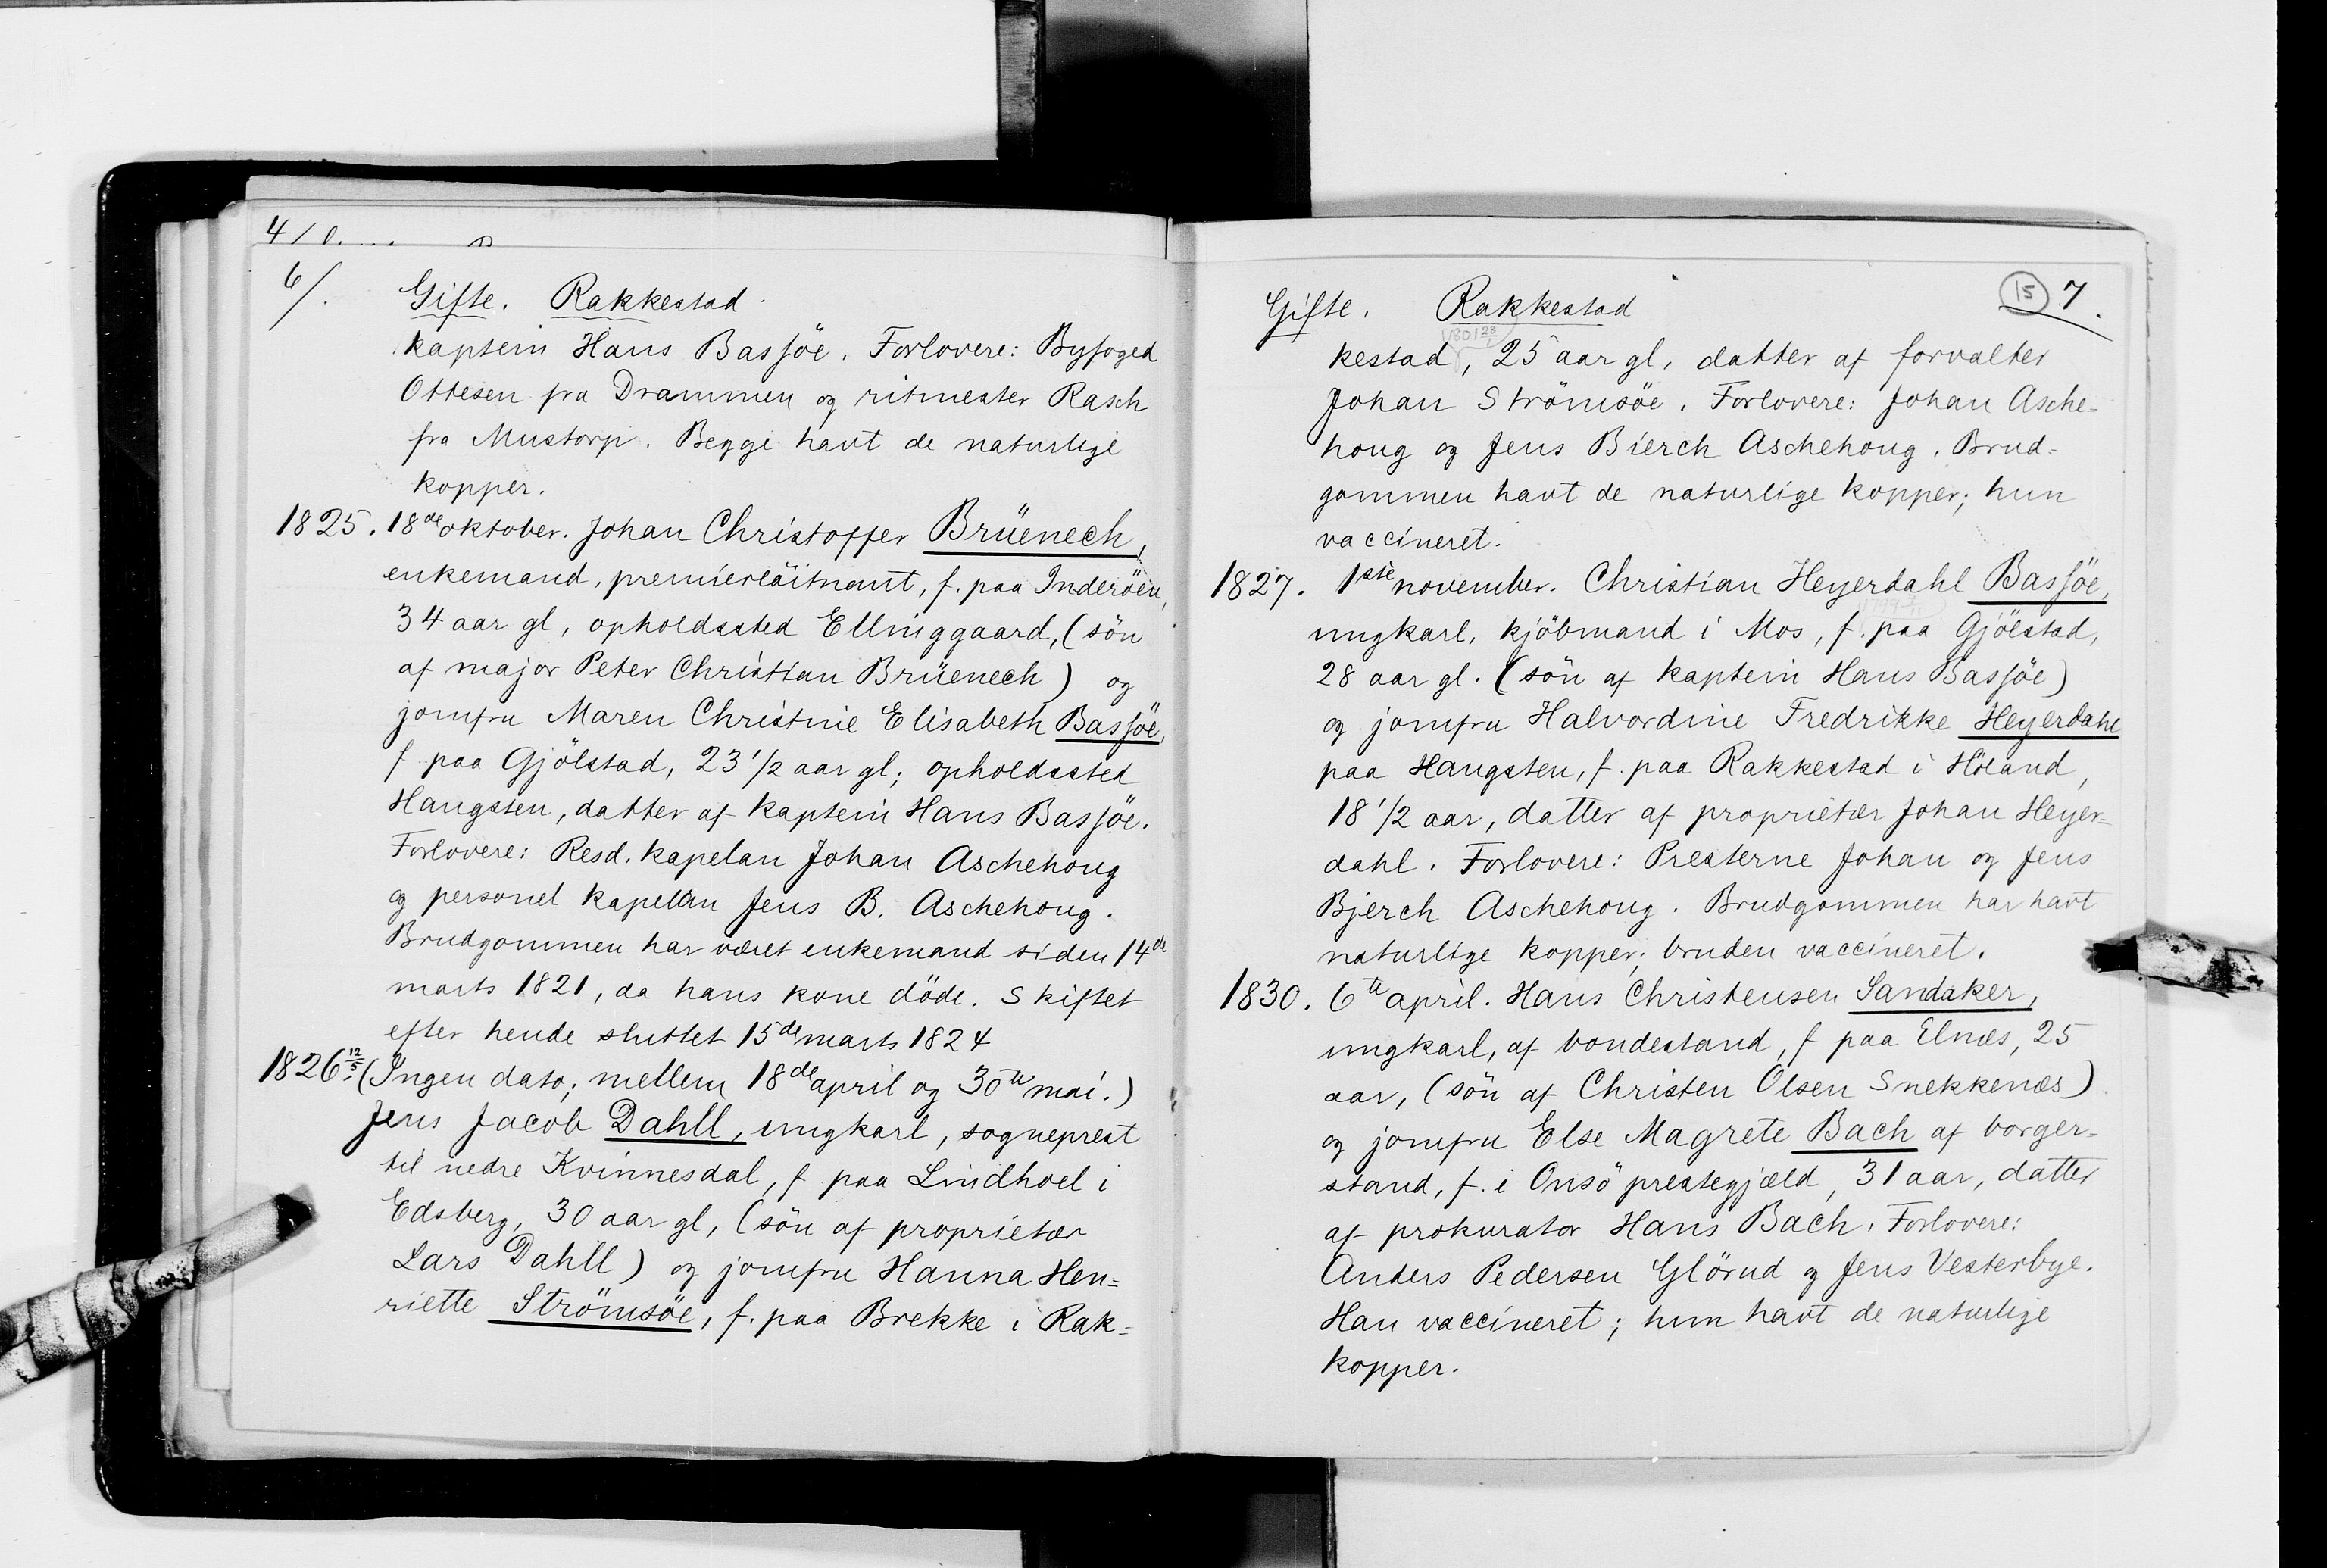 6/.
Gifte. Rakkestad.
kaptein Hans Bassöe. Forlovere: Byfoged
Ottesen fra Drammen og ritmester Rasch
fra Mustorp. Begge havt de naturlige
kopper.
1825. 18de oktober. Johan Christoffer Brüenech,
enkemand, premierlöitnant, f. paa Inderöen,
34 aar gl, opholdssted Ellinggaard, (sön
af major Peter Christian Brüenech) og
jomfru Maren Christine Elisabeth Bassöe,
f paa Gjölstad, 23 1/2 aar gl; opholdssted
Haugsten, datter af kaptein Hans Bassöe.
Forlovere: Resd. kapelan Johan Aschehoug
og personel kapelan Jens B. Aschehoug.
Brudgommen har været enkemand siden 14de
marts 1821, da hans kone döde. Skiftet
efter hende sluttet 15de marts 1824
1826 12/5. (Ingen dato; mellem 18de april og 30te mai.)
Jens Jacob Dahll, ungkarl, sogneprest
til nedre Kvinnesdal, f paa Lindhoel i
Edsberg, 30 aar gl, (sön af proprietær
Lars Dahll) og jomfru Hanna Hen=
riette Strömsöe, f. paa Brekke i Rak=
15 7.
Gifte. Rakkestad
kestad, 25 aar gl, datter af forvalter
Johan Strömsöe. Forlovere: Johan Asche=
houg og Jens Bierch Aschehoug. Brud=
gommen havt de naturlige kopper; hun
vaccineret.
1827. 1ste november. Christian Heyerdahl Bassöe,
ungkarl, kjöbmand i Mos, f. paa Gjölstad,
28 aar gl. (sön af kaptein Hans Bassöe)
og jomfru Halvordine Fredrikke Heyerdahl
paa Haugsten, f. paa Rakkestad i Höland,
18 1/2 aar, datter af proprietær Johan Heyer=
dahl. Forlovere: Presterne Johan og Jens
Bjerch Aschehoug. Brudgommen har havt
naturlige kopper; bruden vaccineret.
1830. 6te april. Hans Christensen Sandaker,
ungkarl, af bondestand, f paa Elnæs, 25
aar, (sön af Christen Olsen Snekkenæs)
og jomfru Else Magrete Bach af borger=
stand, f. i Onsö prestegjæld, 31 aar, datter
af prokurator Hans Bach. Forlovere:
Anders Pedersen Glörud og Jens Vesterbye.
Han vaccineret; hun havt de naturlige
kopper.